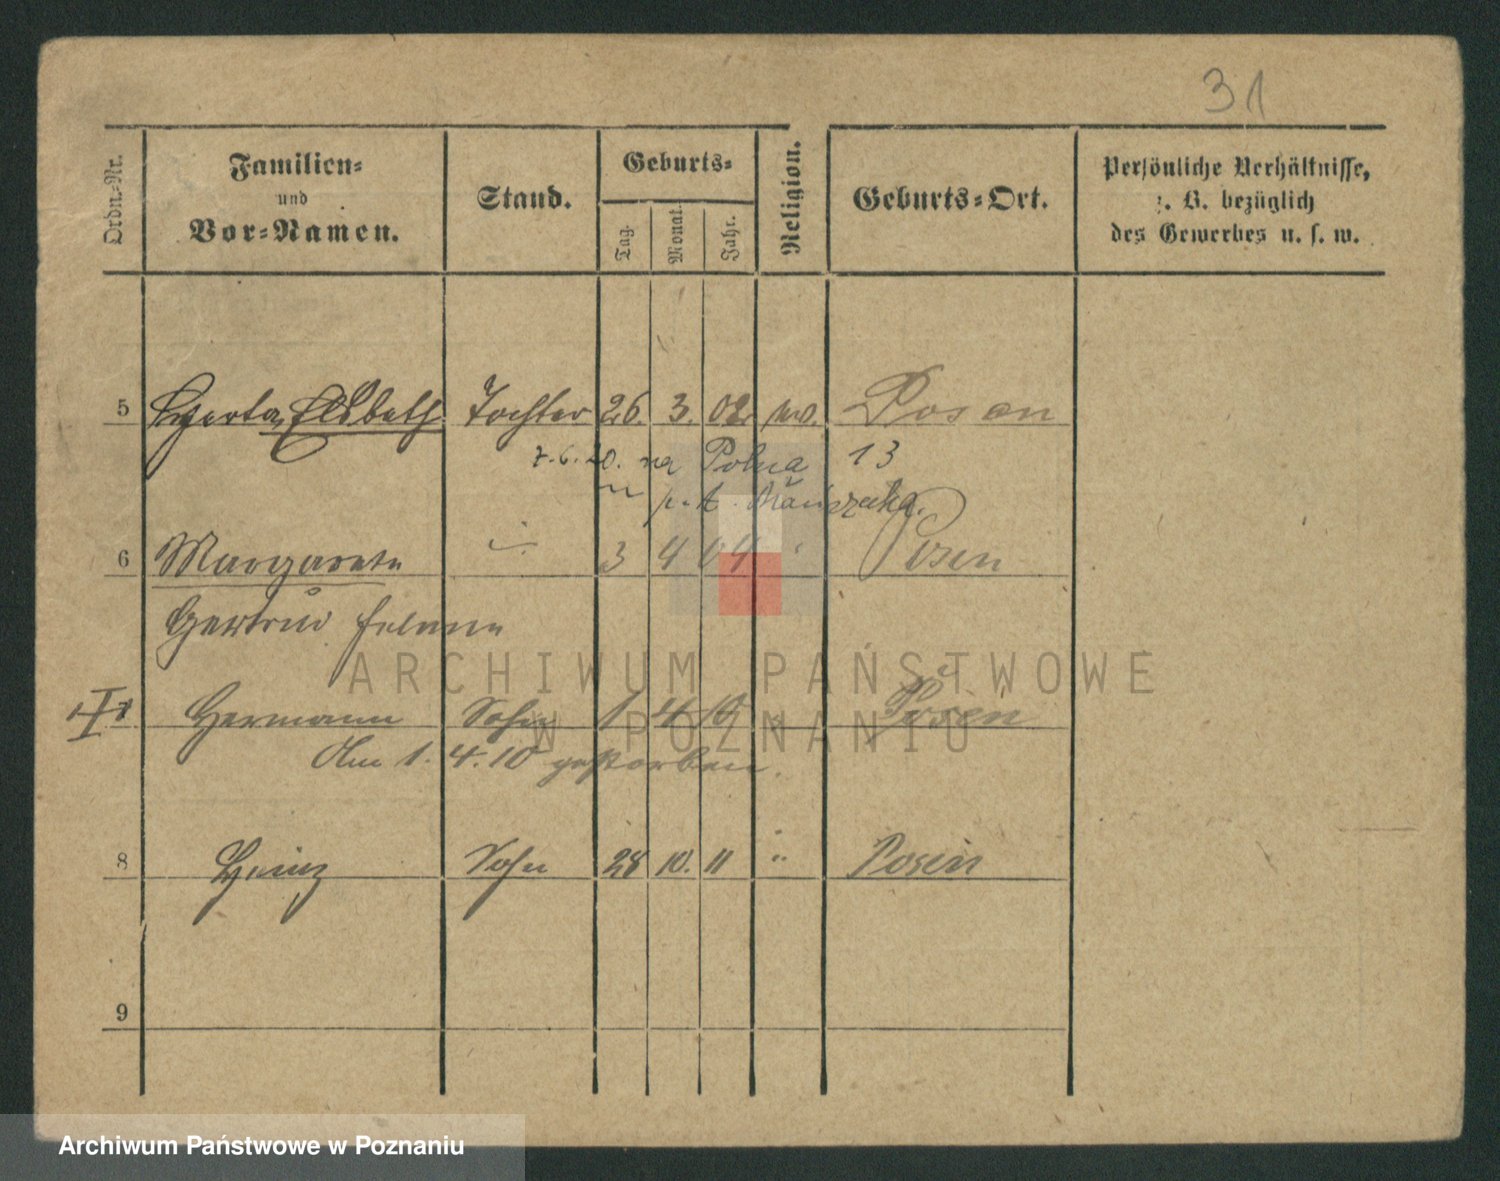 31
Ordn.-Nr.
Familien-
und
Vor-Namen.
Stand.
Geburts-
Tag. Monat. Jahr.
Religion.
Geburts-Ort.
Persönliche Verhältnisse,
z. B. bezüglich
des Gewerbes u. s. w.
5 Herta, Elsbeth Tochter 26. 3. 02 ev. Posen
7.6.20. na Polna 13
6 Margarete 3 4 04 Posen
Gertrud
Hermann Sohn 1 4 10 Posen
Am 1. 4. 10 gestorben.
8 Heinz Sohn 28 10. 11 " Posen
9
ARCHIWUM PAŃSTWOWE
W POZNANIU
Archiwum Państwowe w Poznaniu